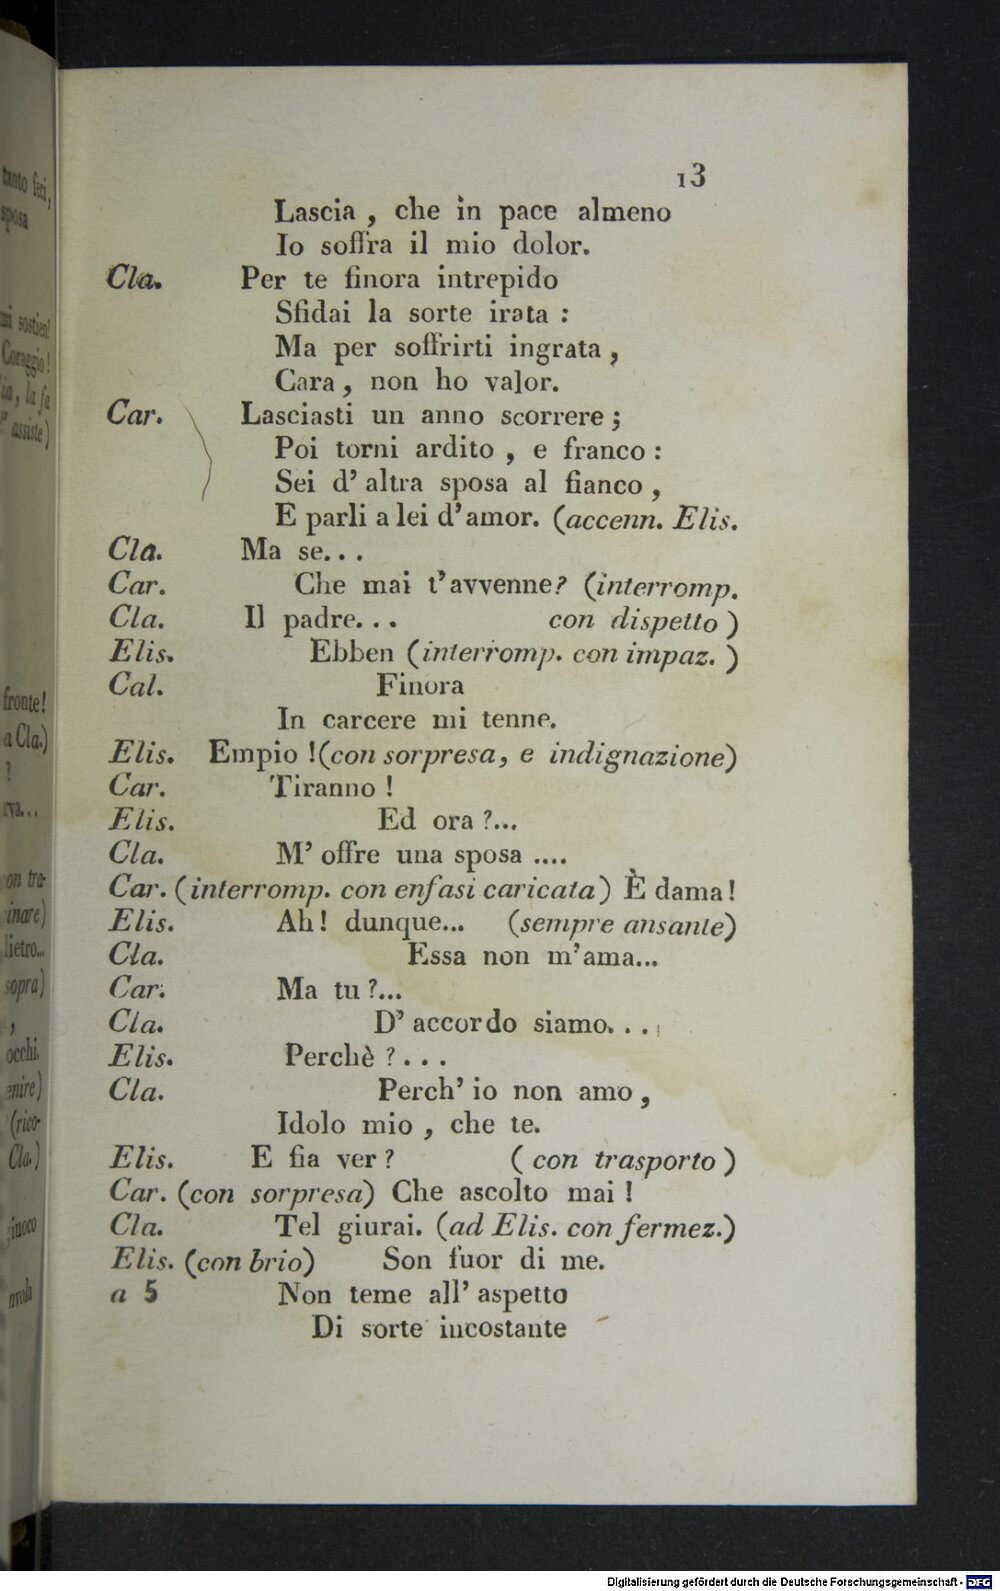 13
Lascia , che in pace almeno
Io soffra il mio dolor.
Cla. Per te finora intrepido
Sfidai la sorte irata :
Ma per soffrirti ingrata ,
Cara , non ho valor.
Car. Lasciasti un anno scorrere ;
Poi torni ardito , e franco :
Sei d' altra sposa al fianco ,
E parli a lei d'amor. (accenn. Elis.
Cla. Ma se...
Car. Che mai t'avvenne? (interromp.
Cla. Il padre... con dispetto )
Elis. Ebben (interromp. con impaz. )
Cal. Finora
In carcere mi tenne.
Elis. Empio !(con sorpresa, e indignazione)
Car. Tiranno !
Elis. Ed ora ?...
Cla. M' offre una sposa ....
Car. (interromp. con enfasi caricata) È dama !
Elis. Ah! dunque... (sempre ansante)
Cla. Essa non m'ama...
Car. Ma tu ?...
Cla. D' accordo siamo...
Elis. Perchè ?...
Cla. Perch' io non amo ,
Idolo mio , che te.
Elis. E fia ver ? ( con trasporto )
Car. (con sorpresa) Che ascolto mai !
Cla. Tel giurai. (ad Elis. con fermez.)
Elis. (con brio) Son fuor di me.
a 5 Non teme all' aspetto
Di sorte incostante
tanto feri,
sposa
mi sostien!
Coraggio!
la fa
assiste)
fronte!
a Cla.)
!
on tra-
inare)
lietro...
sopra)
,
occhi.
enire)
(rico-
Cla.)
Digitalisierung gefördert durch die Deutsche Forschungsgemeinschaft - DFG